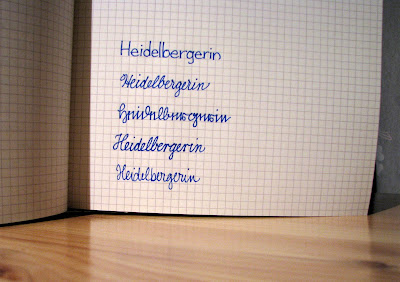 Heidelbergerin
Heidelbergerin
Heidelbergerin
Heidelbergerin
Heidelbergerin